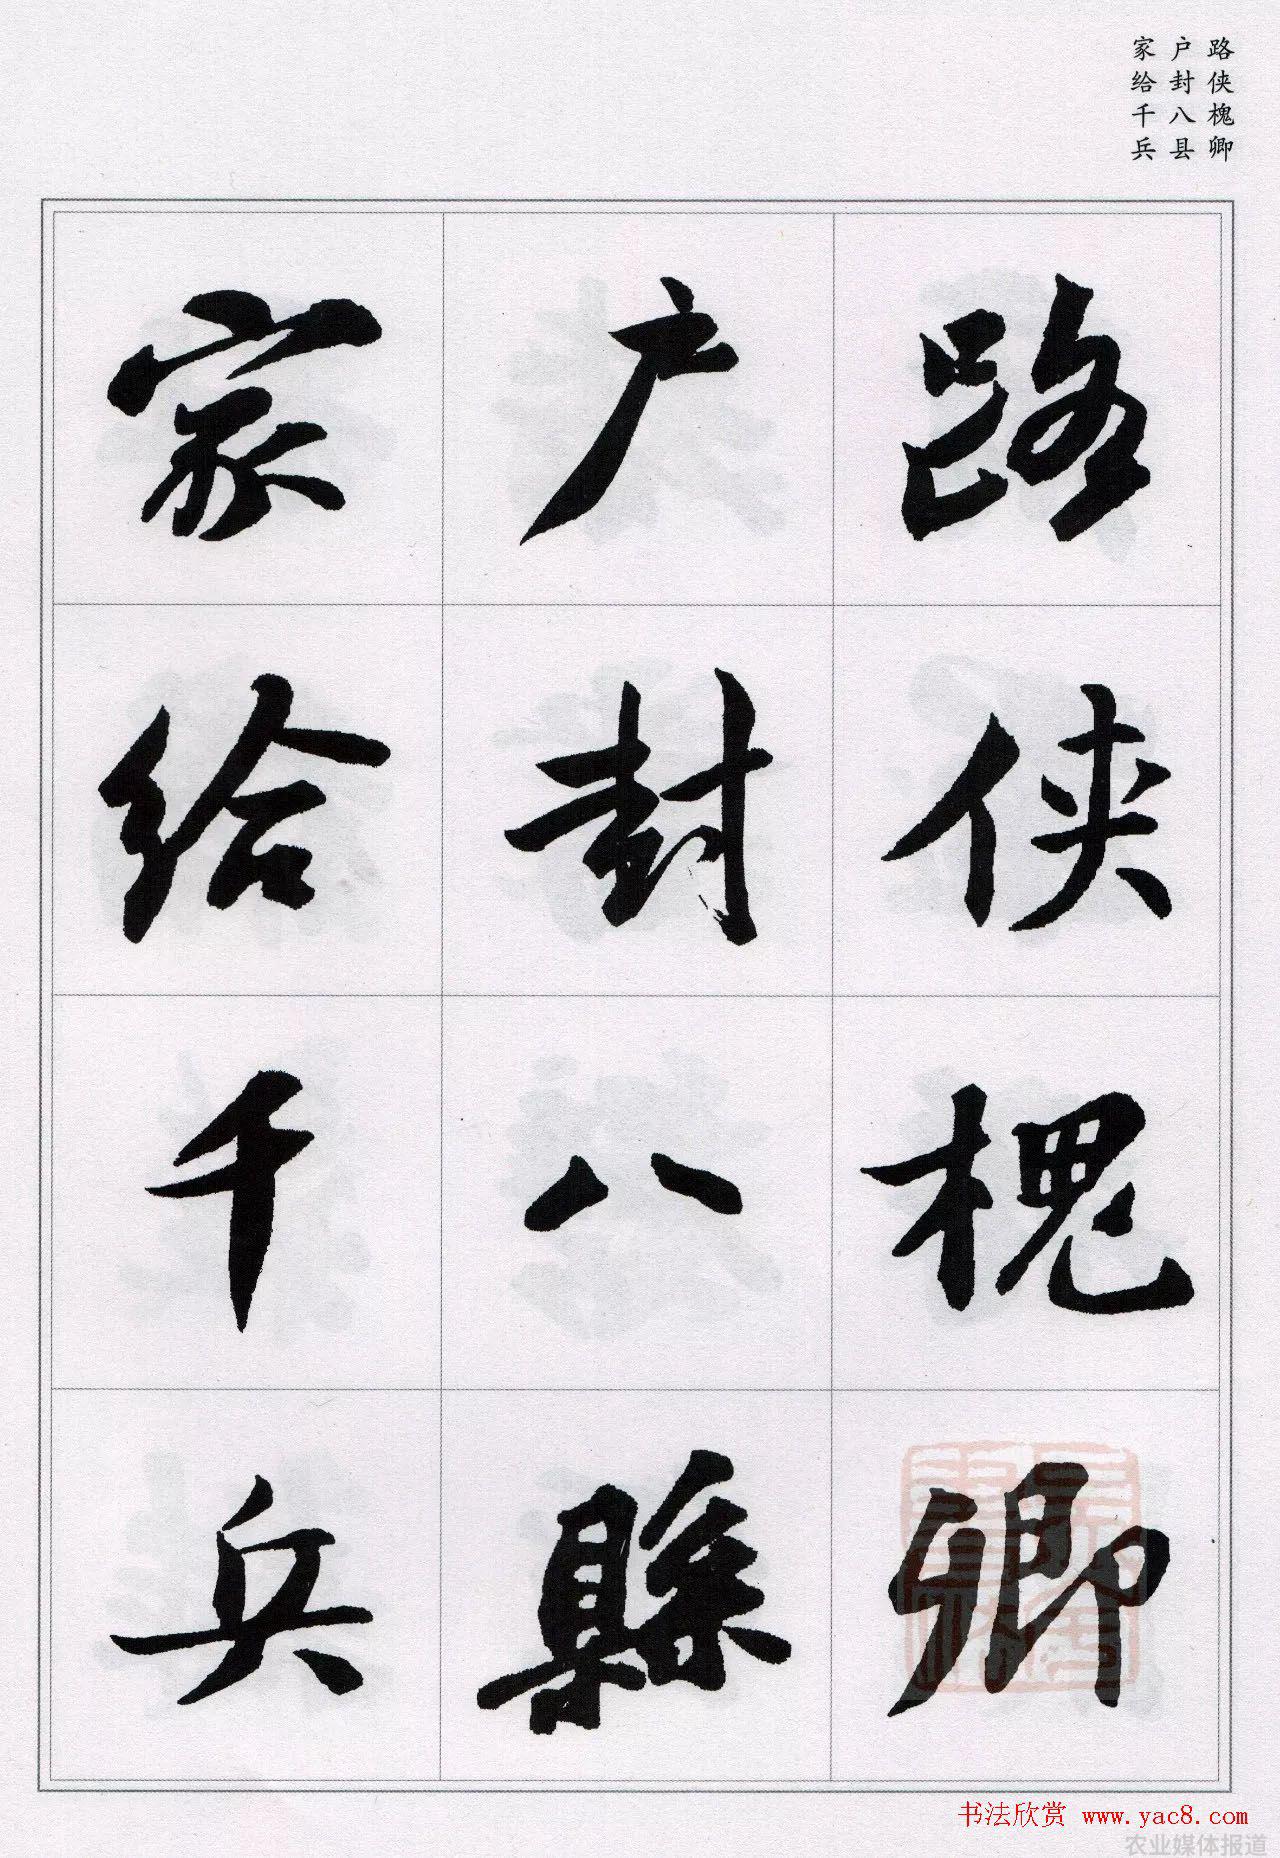 路侠槐卿
户封八县
家给千兵
路侠槐卿
户封八縣
家给千兵
书法欣赏 www.yac8.com
农业媒体报道